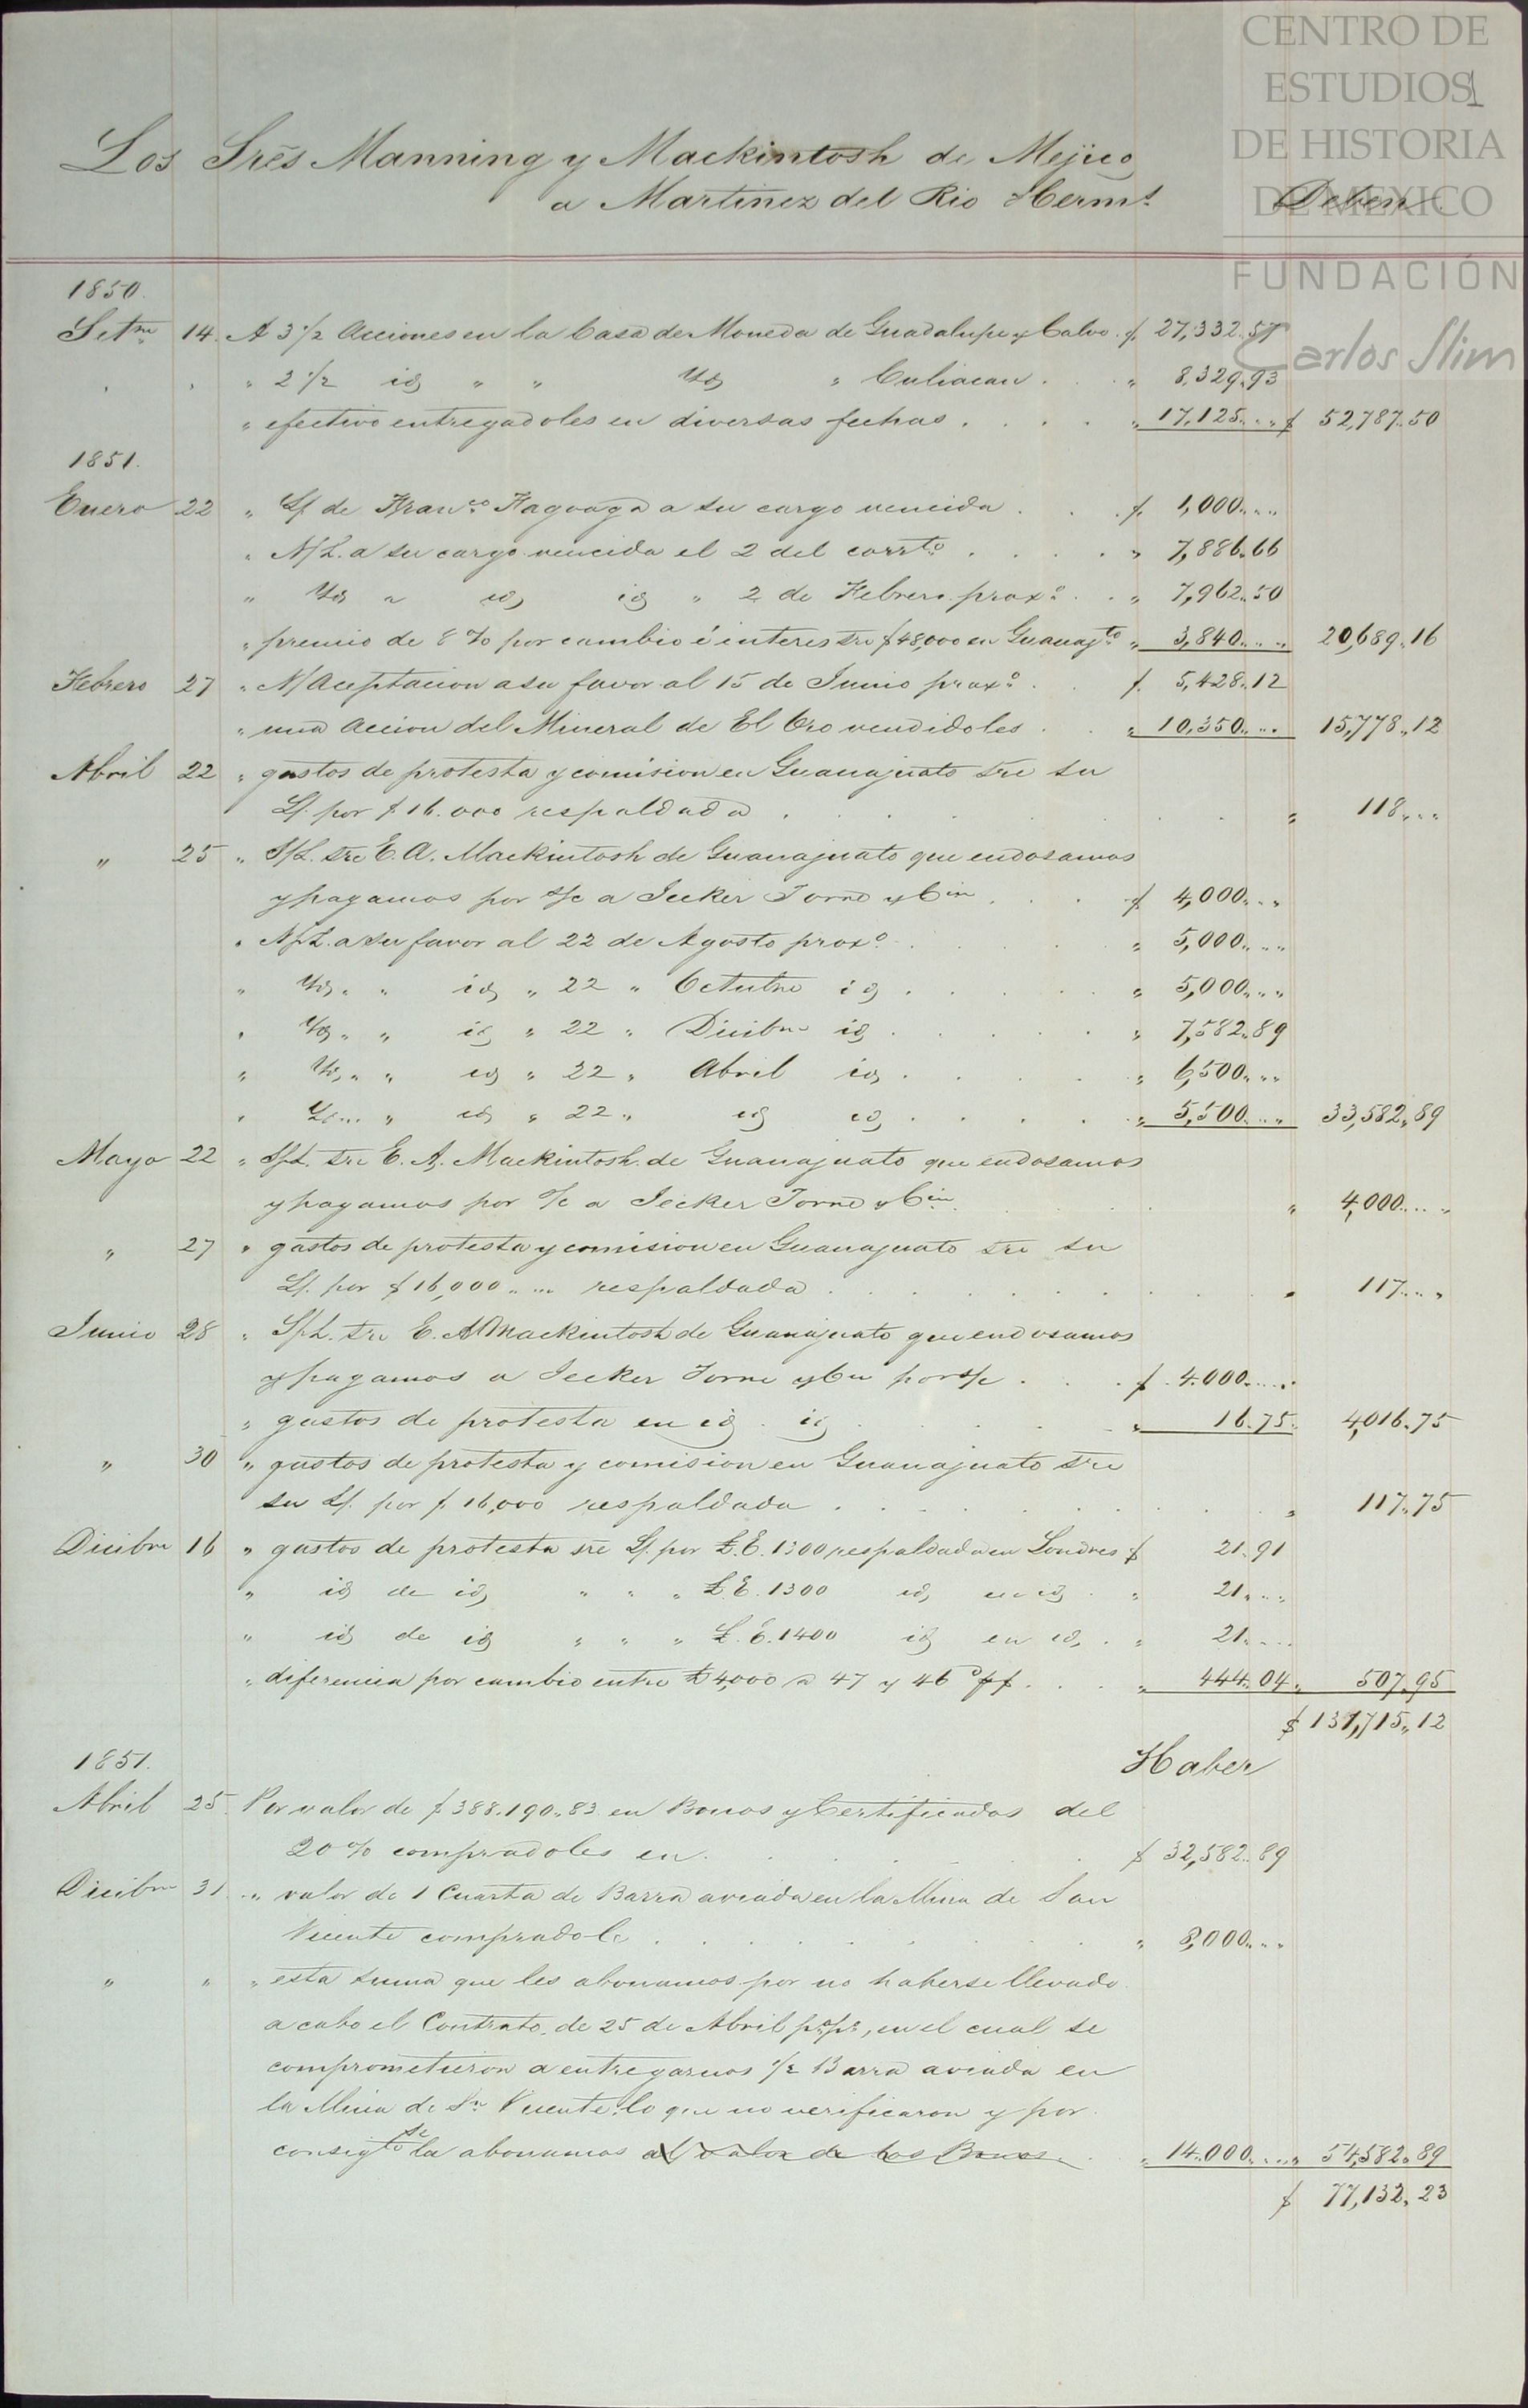 CENTRO DE
ESTUDIOS
DE HISTORIA
DE MEXICO
FUNDACIÓN
Carlos Slim
1
Los Sres Manning y Mackintosh de Mejico
a Martinez del Rio Herms. Deben
1850.
Setre 14. A 3 1/2 Acciones en la Casa de Moneda de Guadalupe y Calvo. $ 27,332.57
" 2 1/2 id " " Yd " Culiacan . . " 8,329.93
" efectivo entregadoles en diversas fechas . . . . " 17,125.... $ 52,787.50
1851.
Enero 22 " L/ de Franco Fagoaga a su cargo vencida . . . $ 1,000....
" N/L. a su cargo vencida el 2 del corrto . . . . " 7,886.66
" Yd a id id " 2 de Febrero proxo . . " 7,962.50
" premio de 8 % por cambio é interes sre $48,000 en Guanajto " 3,840.... 20,689.16
Febrero 27 " N/Aceptacion a su favor al 15 de Junio proxo . . $ 5,428.12
" una Accion del Mineral de El Oro vendidoles . . " 10,350.... 15,778.12
Abril 22 " gastos de protesta y comision en Guanajuato sre su
L/. por $ 16.000 respaldada . . . . . " 118....
" 25 " S/L. sre E. A. Mackintosh de Guanajuato que endosamos
y pagamos por s/c a Jecker Torre y Cia . . . $ 4,000....
" N/L. a su favor al 22 de Agosto proxo . . . . " 5,000....
" Yd " " id " 22 " Octubre id . . . . " 5,000....
" Yd " " id " 22 " Dicibre id . . . . " 7,582.89
" Yd " " id " 22 " Abril id . . . . " 6,500....
" Yd " " id " 22 " id id . . . . " 5,500.... 33,582.89
Mayo 22 " S/L. sre E. A. Mackintosh de Guanajuato que endosamos
y pagamos por s/c a Jecker Torre y Cia . . . . " 4,000....
" 27 " gastos de protesta y comision en Guanajuato sre su
L/. por $ 16,000.... respaldada . . . . . " 117....
Junio 28 " S/L. sre E. A Mackintosh de Guanajuato que endosamos
y pagamos a Jecker Torre y Cia por s/c . . . $ 4.000....
" gastos de protesta en id . id . . . . " 16.75. 4,016.75
" 30 " gastos de protesta y comision en Guanajuato sre
su L/. por $ 16,000 respaldada . . . . . " 117.75
Dicibre 16 " gastos de protesta sre L/. por £.E. 1300 respaldada en Londres $ 21.91
" id de id " " " £.E. 1300 id en id . " 21....
" id de id " " " £.E. 1400 id en id . " 21....
" diferencia por cambio entre £ 4,000 a 47 y 46 . . . " 444.04 " 507.95
$ 131,715.12
Haber
1851.
Abril 25. Por valor de $ 388.190.83 en Bonos y Certificados del
20 % compradoles en . . . . . $ 32,582.89
Dicibre 31 " valor de 1 Cuarta de Barra aviada en la Mina de San
Vicente compradole . . . . . " 8,000....
" " " esta suma que les abonamos por no haberse llevado
a cabo el Contrato de 25 de Abril p.p., en el cual se
comprometieron a entregarnos 1/2 Barra aviada en
la Mina de Sn Vicente, lo que no verificaron y por
consigto se la abonamos al valor de los Bonos. " 14.000.... " 54,582.89
$ 77,132.23